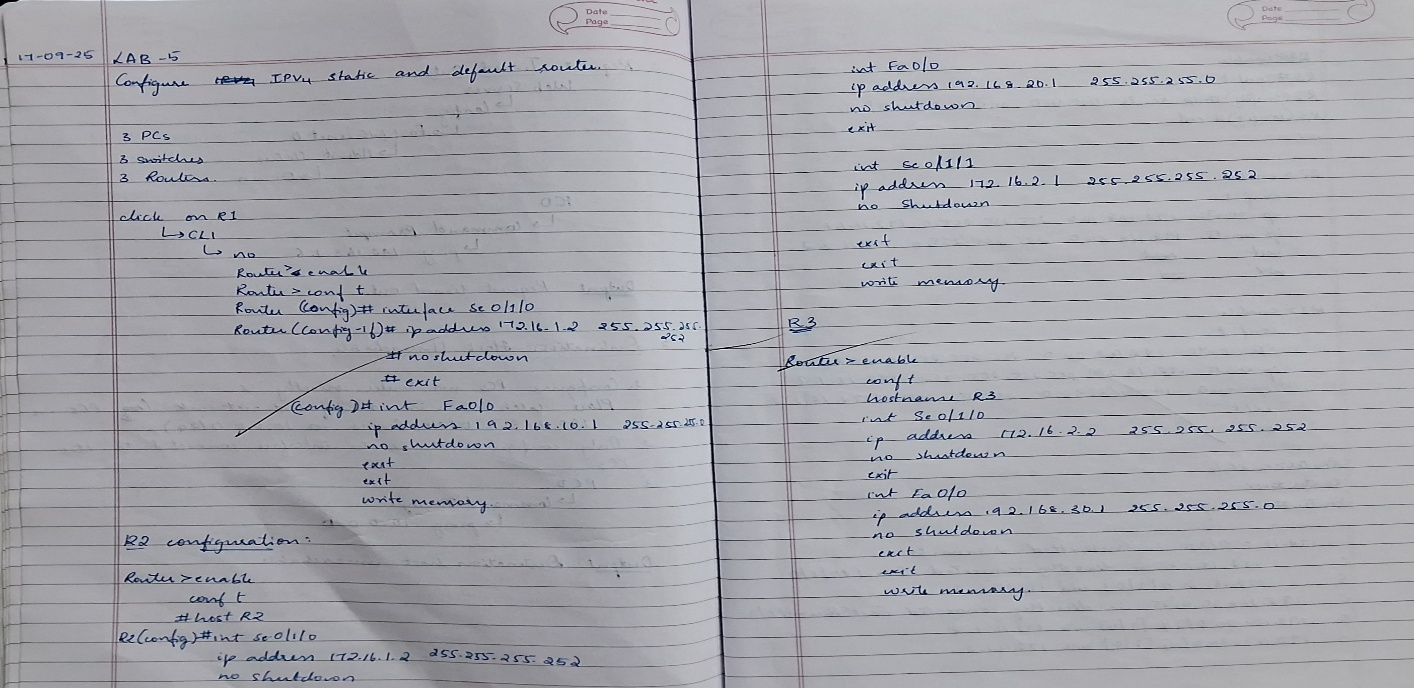 Date
Page
17-09-25 LAB-5
Configure IPV4 static and default router.
3 PCs
3 switches
3 Routers.
click on R1
↳ CLI
↳ no
Router> enable
Router > conf t
Router (config)# interface se 0/1/0
Router (config-if)# ip address 172.16.1.2 255.255.255.
252
# no shutdown
# exit
(config)# int Fa0/0
ip address 192.168.10.1 255.255.255.0
no shutdown
exit
exit
write memory.
R2 configuration:
Router > enable
conf t
# host R2
R2(config)# int se 0/1/0
ip address 172.16.1.2 255.255.255.252
no shutdown
Date
Page
int Fa0/0
ip address 192.168.20.1 255.255.255.0
no shutdown
exit
int Se 0/1/1
ip address 172.16.2.1 255.255.255.252
no Shutdown
exit
exit
write memory.
R3
Router > enable
conf t
hostname R3
int Se 0/1/0
ip address 172.16.2.2 255.255.255.252
no shutdown
exit
int Fa 0/0
ip address 192.168.30.1 255.255.255.0
no shutdown
exit
exit
write memory.